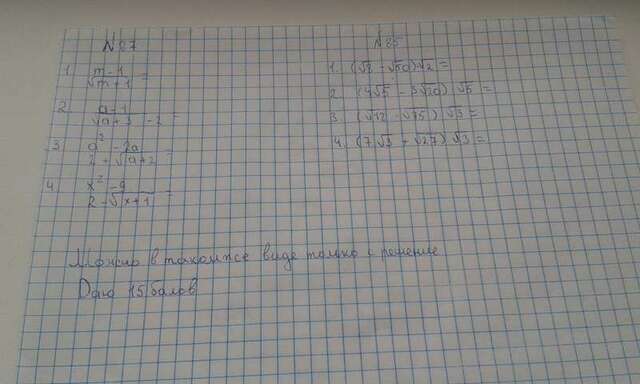 N87
1. m-1 / √m+1 =
2. a-1 / √a+3 -2 =
3 a² - 2a / 2+√a+2 =
4. x² - 9 / 2-√x+1 =
N85
1. (√8 - √50)√2 =
2 (4√5 - 3√20) √5 =
3 (√12 √75) √3 =
4. (7√3 - √27) √3 =
Можно в таком же виде только с решение
Даю 15 балов